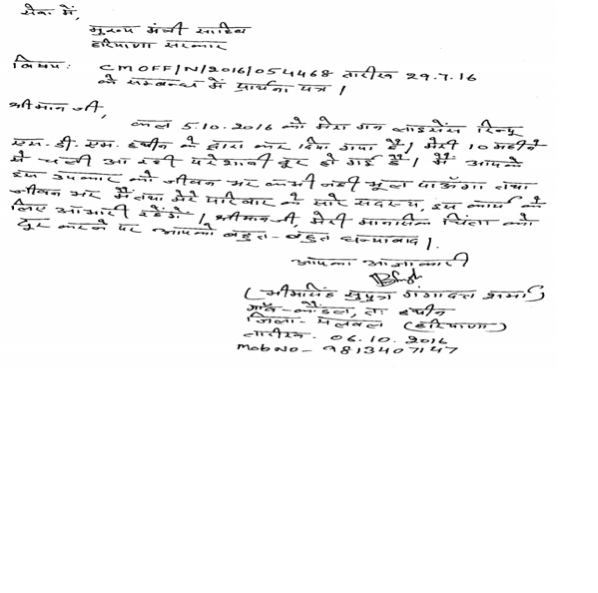 सेवा में,
मुख्य मंत्री साहिब
हरियाणा सरकार
विषय: CMOFF/N/2016/054468 तारीख 29.7.16
के सम्बन्ध में प्रार्थना पत्र।
श्रीमान जी,
कल 5.10.2016 को मेरा गन लाइसेंस रिन्यू
एस.डी.एम. हथीन के द्वारा कर दिया गया है। मेरी 10 महीने
से चली आ रही परेशानी दूर हो गई है। मैं आपके
इस उपकार को जीवन भर कभी नहीं भूला पाऊँगा तथा
जीवन भर मैं तथा मेरे परिवार के सारे सदस्य, इस कार्य के
लिए आभारी रहेंगे। श्रीमान जी, मेरी मानसिक चिंता को
दूर करने पर आपको बहुत-बहुत धन्यावाद।
आपका आज्ञाकारी
(भीमसिंह सुपुत्र गंगादत्त शर्मा)
गाँव-कोंडल, ता हथीन
जिला-पलवल (हरियाणा)
तारीख. 06.10.2016
Mob No- 9813407147